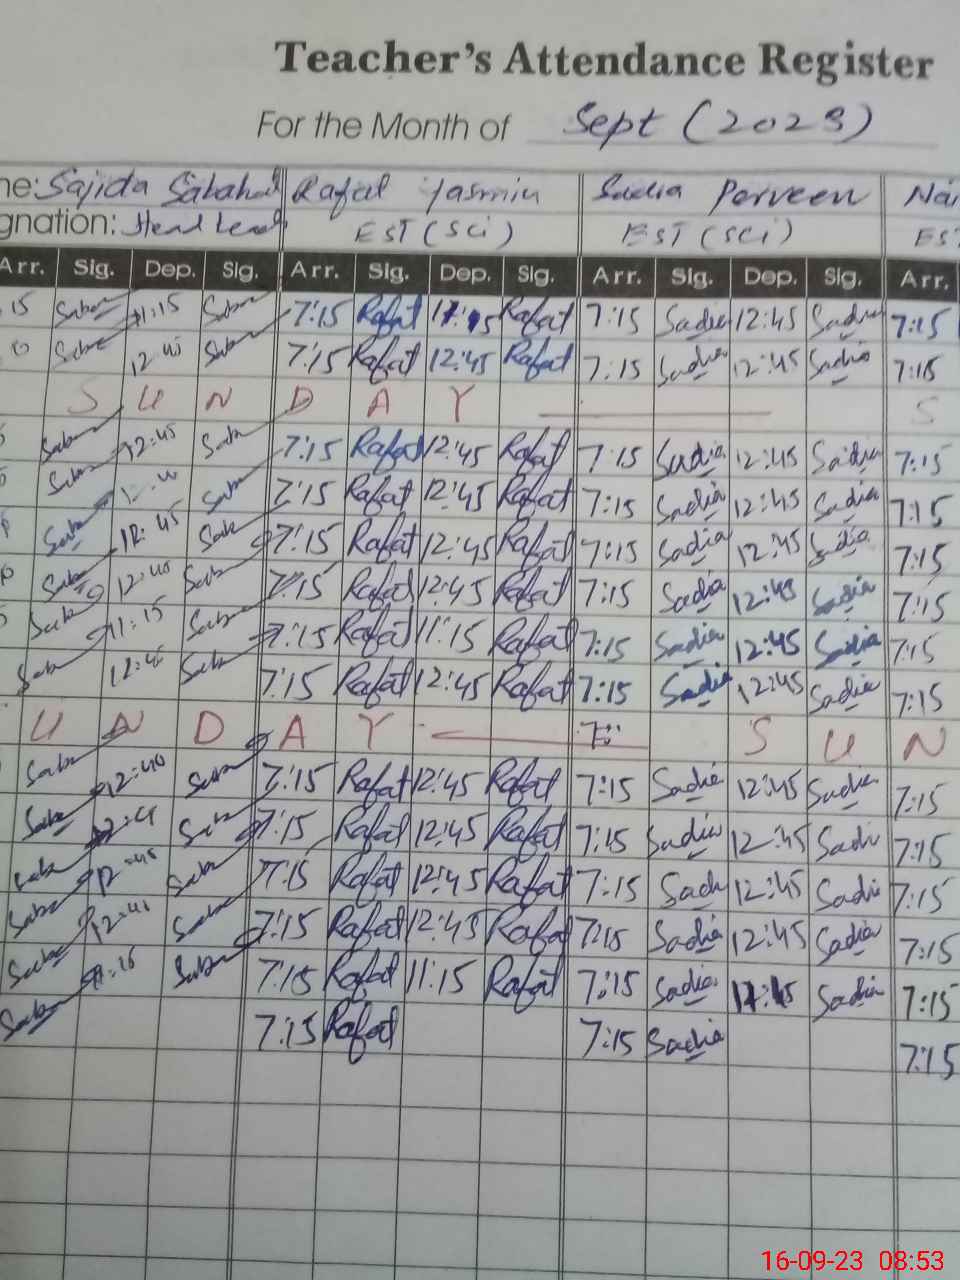 Teacher's Attendance Register
For the Month of Sept (2023)
ne: Sajida Sabahat Rafat Yasmin Sadia Perveen Nai
gnation: Head EST (Sci) EST (Sci) EST
Arr. Sig. Dep. Sig. Arr. Sig. Dep. Sig. Arr. Sig. Dep. Sig. Arr.
15 11:15 7:15 Rafat Rafat 7:15 Sadia 12:45 Sadia 7:15
12:45 7:15 Rafat 12:45 Rafat 7:15 Sadia 12:45 Sadia 7:15
S U N D A Y S
12:45 7:15 Rafat 12:45 Rafat 7:15 Sadia 12:45 Sadia 7:15
7:15 Rafat 12:45 Rafat 7:15 Sadia 12:45 Sadia 7:15
12:45 7:15 Rafat 12:45 Rafat 7:15 Sadia 12:45 Sadia 7:15
12:40 7:15 Rafat 12:45 Rafat 7:15 Sadia 12:45 Sadia 7:15
11:15 7:15 Rafat 11:15 Rafat 7:15 Sadia 12:45 Sadia 7:15
7:15 Rafat 12:45 Rafat 7:15 Sadia 12:45 Sadia 7:15
U N D A Y S U N
12:40 7:15 Rafat 12:45 Rafat 7:15 Sadia 12:45 Sadia 7:15
7:15 Rafat 12:45 Rafat 7:15 Sadia 12:45 Sadi 7:15
12:45 7:15 Rafat 12:45 Rafat 7:15 Sadi 12:45 Sadi 7:15
12:41 7:15 Rafat 12:45 Rafat 7:15 Sadia 12:45 Sadia 7:15
7:15 Rafat 11:15 Rafat 7:15 Sadia Sadia 7:15
7:15 Rafat 7:15 Sadia 7:15
16-09-23 08:53